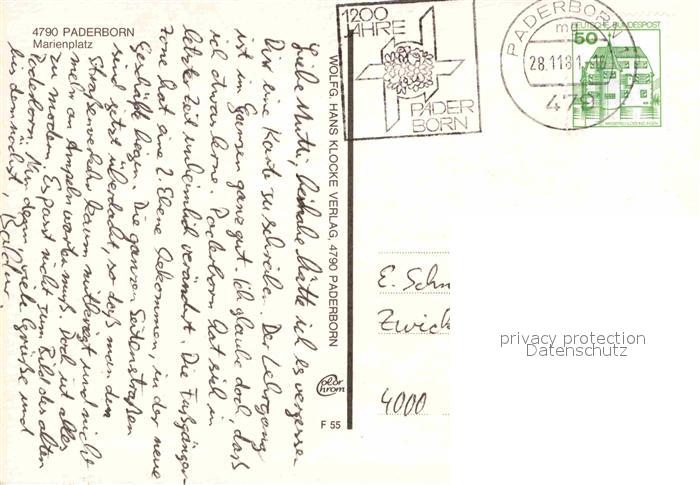 4790 PADERBORN
Marienplatz
Liebe Mutti, beinahe hätte ich es vergessen
Dir eine Karte zu schreiben. Der Lehrgang
ist im Ganzen ganz gut. Ich glaube doch, daß
ich etwas lerne. Paderborn hat sich in
letzter Zeit unheimlich verändert. Die Fußgänger-
zone hat eine 2. Ebene bekommen, in der neue
Geschäfte liegen. Die ganzen Seitenstraßen
sind jetzt überdacht, so daß man den
Straßenverkehr kaum mitkriegt und nicht
mehr an Ampeln warten muß. Doch ist alles
zu modern. Es passt nicht zum Bild des alten
Paderborn. Nun denn viele Grüße und
bis demnächst,
WOLFG. HANS KLOCKE VERLAG, 4790 PADERBORN
color
chrom
F 55
1200
JAHRE
PADER
BORN
PADERBORN
28.11.81
479
DEUTSCHE BUNDESPOST
50
E. Schn
Zwick
4000
privacy protection
Datenschutz